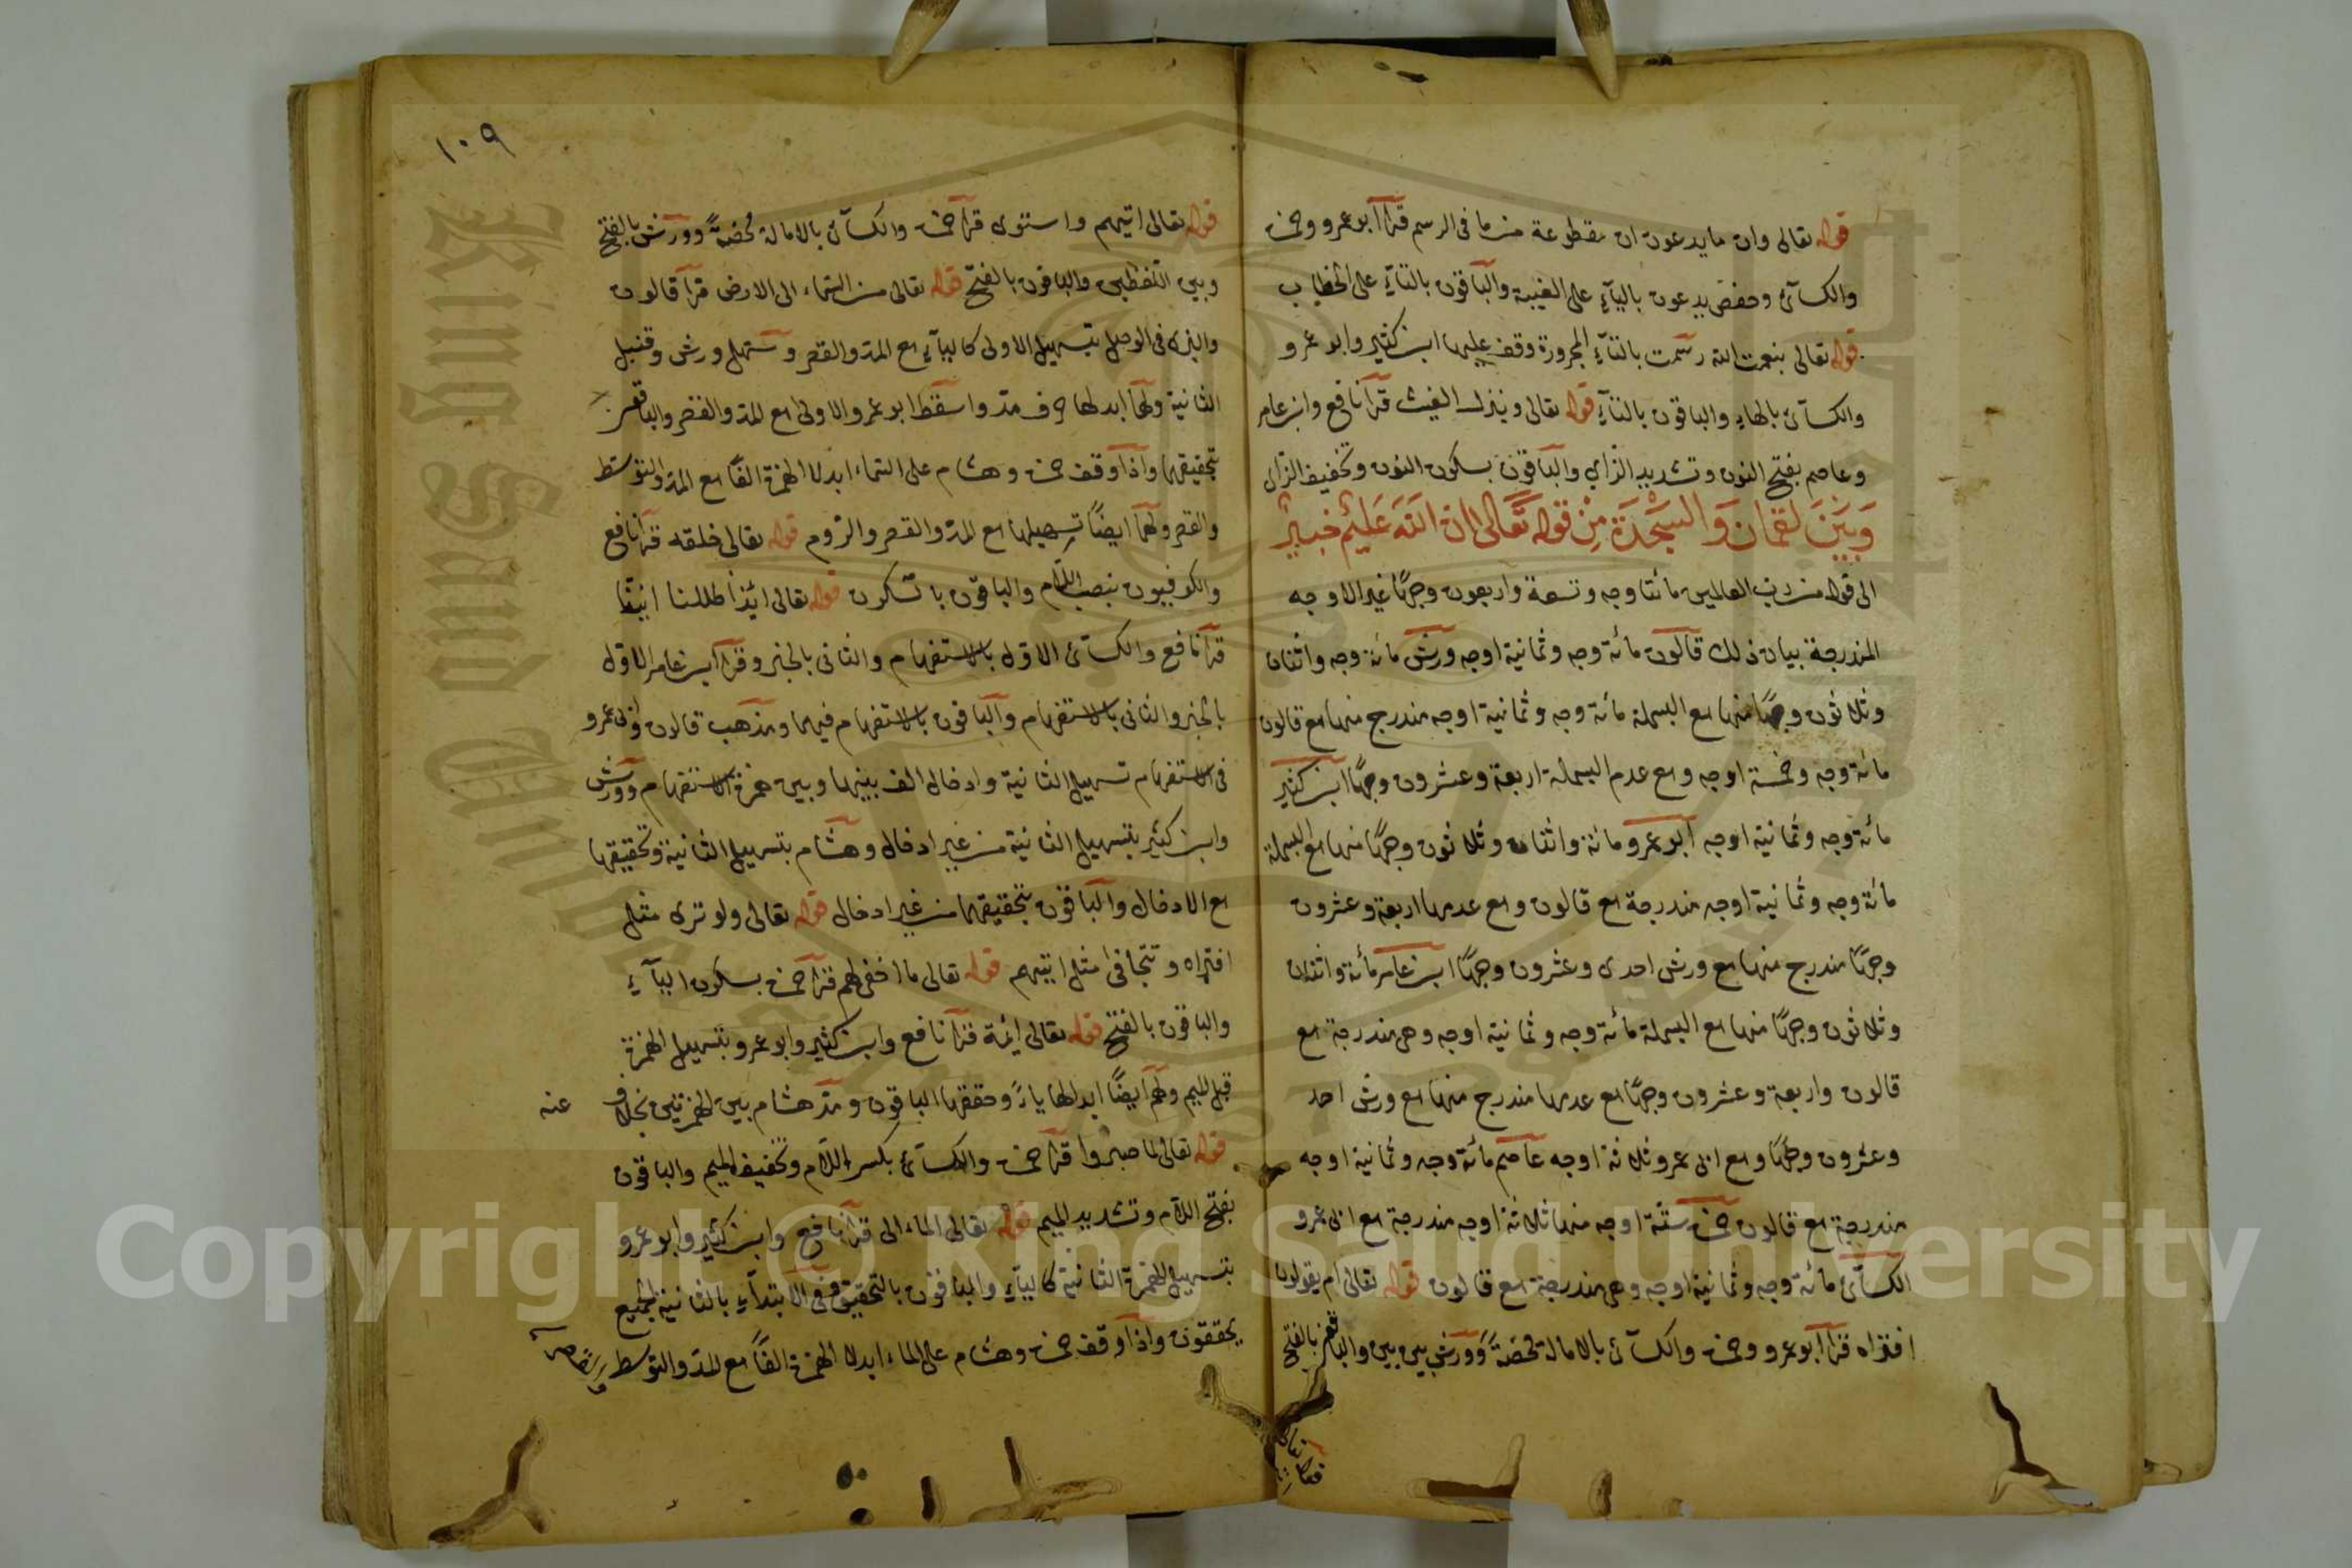 قوله تعالى وان ما يدعون ان مقطوعة من ما فى الرسم قرأ ابو عمرو وحمزة
والكسائى وحفص يدعون بالياء على الغيبة والباقون بالتاء على الخطاب
قوله تعالى بنعمت الله رسمت بالتاء المجرورة وقف عليها ابن كثير وابو عمرو
والكسائى بالهاء والباقون بالتاء قوله تعالى وينزل الغيث قرأ نافع وابن عامر
وعاصم بفتح النون وتشديد الزاي والباقون بسكون النون وتخفيف الزاى
وَبَيْنَ لقمان وَالسَّجْدَة مِنْ قوله تَعَالى ان الله عَلِيمٌ خبيرٌ
الى قوله من رب العالمين مائتا وجه وتسعة واربعون وجهًا غير الاوجه
المندرجة بيان ذلك قالون مائة وجه وثمانية اوجه ورش مائة وجه واثنان
وثلاثون وجهًا منها مع البسملة مائة وجه وثمانية اوجه مندرج منها مع قالون
مائة وجه وخمسة اوجه ومع عدم البسملة اربعة وعشرون وجهًا ابن كثير
مائة وجه وثمانية اوجه ابو عمرو مائة واثنان وثلاثون وجهًا منها مع البسملة
مائة وجه وثمانية اوجه مندرجة مع قالون ومع عدمها اربعة وعشرون
وجهًا مندرج منها مع ورش احدى وعشرون وجهًا ابن عامر مائة واثنان
وثلاثون وجهًا منها مع البسملة مائة وجه وثمانية اوجه وهى مندرجة مع
قالون واربعة وعشرون وجهًا مع عدمها مندرج منها مع ورش احد
وعشرون وجهًا ومع ابى عمرو ثلاثة اوجه عاصم مائة وجه وثمانية اوجه
مندرجة مع قالون حمزة ستة اوجه منها ثلاثة اوجه مندرجة مع ابى عمرو
الكسائى مائة وجه وثمانية اوجه وهى مندرجة مع قالون قوله تعالى ام يقولون
افتراه قرأ ابو عمرو وحمزة والكسائى بالامالة محضةً وورش بين بين والباقون بالفتح
قوله تعالى
١٠٩
قوله تعالى اتيهم واستوى قرأ حمزة والكسائى بالامالة محضةً وورش بالفتح
وبين اللفظين والباقون بالفتح قوله تعالى من السماء الى الارض قرأ قالون
والبزى فى الوصل بتسهيل الاولى كالياء مع المد والقصر وسهل ورش وقنبل
الثانية ولهما ابدالها حرف مد واسقط ابو عمرو الاولى مع المد والقصر والباقون
بتحقيقهما واذا وقف حمزة وهشام على السماء ابدلا الهمزة الفًا مع المد والتوسط
والقصر ولهما ايضًا تسهيلها مع المد والقصر والروم قوله تعالى خلقه قرأ نافع
والكوفيون بنصب اللام والباقون بالسكون قوله تعالى ائذا ضللنا ائنا
قرأ نافع والكسائى الاول بالاستفهام والثانى بالخبر وقرأ ابن عامر الاول
بالخبر والثانى بالاستفهام والباقون بالاستفهام فيهما ومذهب قالون وابى عمرو
فى الاستفهام تسهيل الثانية وادخال الف بينها وبين همزة الاستفهام وورش
وابن كثير بتسهيل الثانية من غير ادخال وهشام بتسهيل الثانية وتحقيقها
مع الادخال والباقون بتحقيقهما من غير ادخال قوله تعالى ولو ترى مثل
افتراه وتتجافى مثل اتيهم قوله تعالى ما اخفى لهم قرأ حمزة بسكون الياء
والباقون بالفتح قوله تعالى ائمة قرأ نافع وابن كثير وابو عمرو بتسهيل الهمزة
قبل الميم ولهم ايضًا ابدالها ياءً وحققها الباقون ومد هشام بين الهمزتين بخلاف عنه
قوله تعالى لما صبروا قرأ حمزة والكسائى بكسر اللام وتخفيف الميم والباقون
بفتح اللام وتشديد الميم قوله تعالى الماء الى قرأ نافع وابن كثير وابو عمرو
بتسهيل الهمزة الثانية كالياء والباقون بالتحقيق وفى الابتداء بالثانية الجميع
يحققون واذا وقف حمزة وهشام على الماء ابدلا الهمزة الفًا مع المد والتوسط والقصر
King Saud University
Copyright © King Saud University